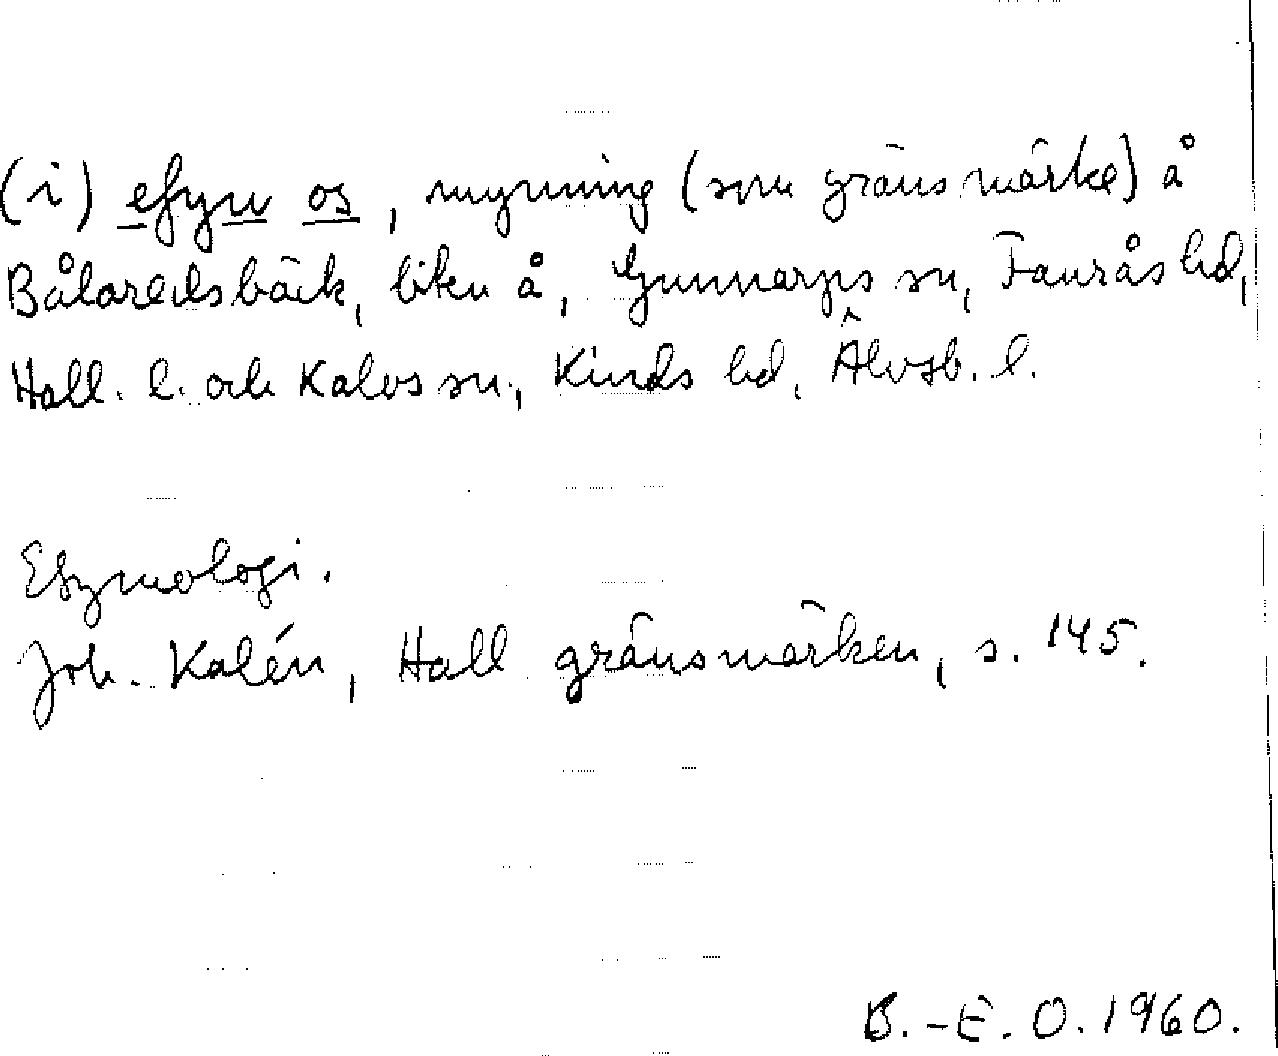 (i) efyu os, mynning (som gränsmärke) å
Bålaredsbäck, liten å, Gunnarps sn, Faurås hd,
Hall. l. och Kalvs sn, Kinds hd, Älvsb. l.
Etymologi.
Joh. Kalén, Hall gränsmärken, s. 145.
B.-E. O. 1960.